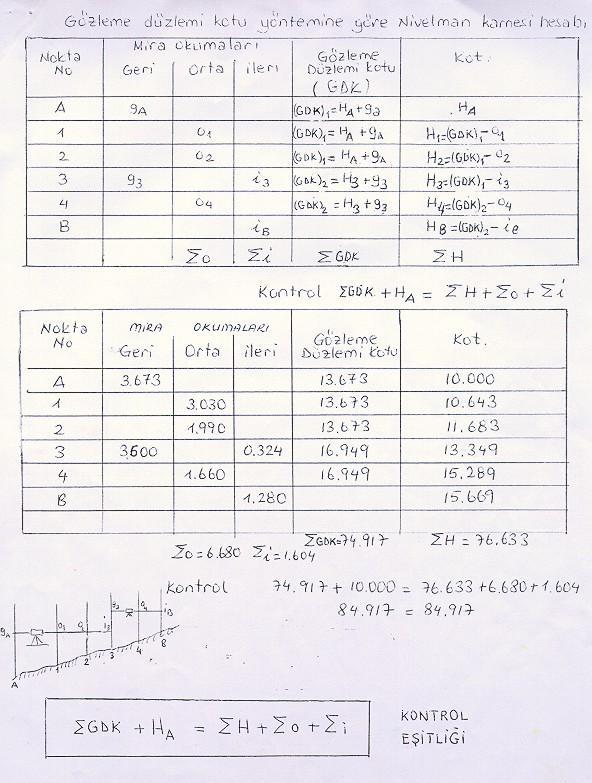 Gözleme düzlemi kotu yöntemine göre Nivelman karnesi hesabı
Nokta No | Mira Okumaları | Gözleme Düzlemi Kotu (GDK) | Kot.
Geri | Orta | ileri
A | gA | (GDK)1=HA+ga | HA
1 | O1 | (GDK)1=HA+gA | H1=(GDK)1-O1
2 | O2 | (GDK)1=HA+gA | H2=(GDK)1-O2
3 | g3 | i3 | (GDK)2=H3+g3 | H3=(GDK)1-i3
4 | O4 | (GDK)2=H3+g3 | H4=(GDK)2-O4
B | iB | HB=(GDK)2-ie
ΣO | Σi | ΣGDK | ΣH
Kontrol ΣGDK + HA = ΣH + ΣO + Σi
Nokta No | MIRA OKUMALARI | Gözleme Düzlemi Kotu | Kot.
Geri | Orta | ileri
A | 3.673 | 13.673 | 10.000
1 | 3.030 | 13.673 | 10.643
2 | 1.990 | 13.673 | 11.683
3 | 3.600 | 0.324 | 16.949 | 13.349
4 | 1.660 | 16.949 | 15.289
B | 1.280 | 15.669
ΣO=6.680 Σi=1.604 ΣGDK=74.917 ΣH = 76.633
Kontrol 74.917 + 10.000 = 76.633 + 6.680 + 1.604
84.917 = 84.917
gA O1 i3 iB
A 1 2 3 4 B
ΣGDK + HA = ΣH + ΣO + Σi
KONTROL
EŞİTLİĞİ